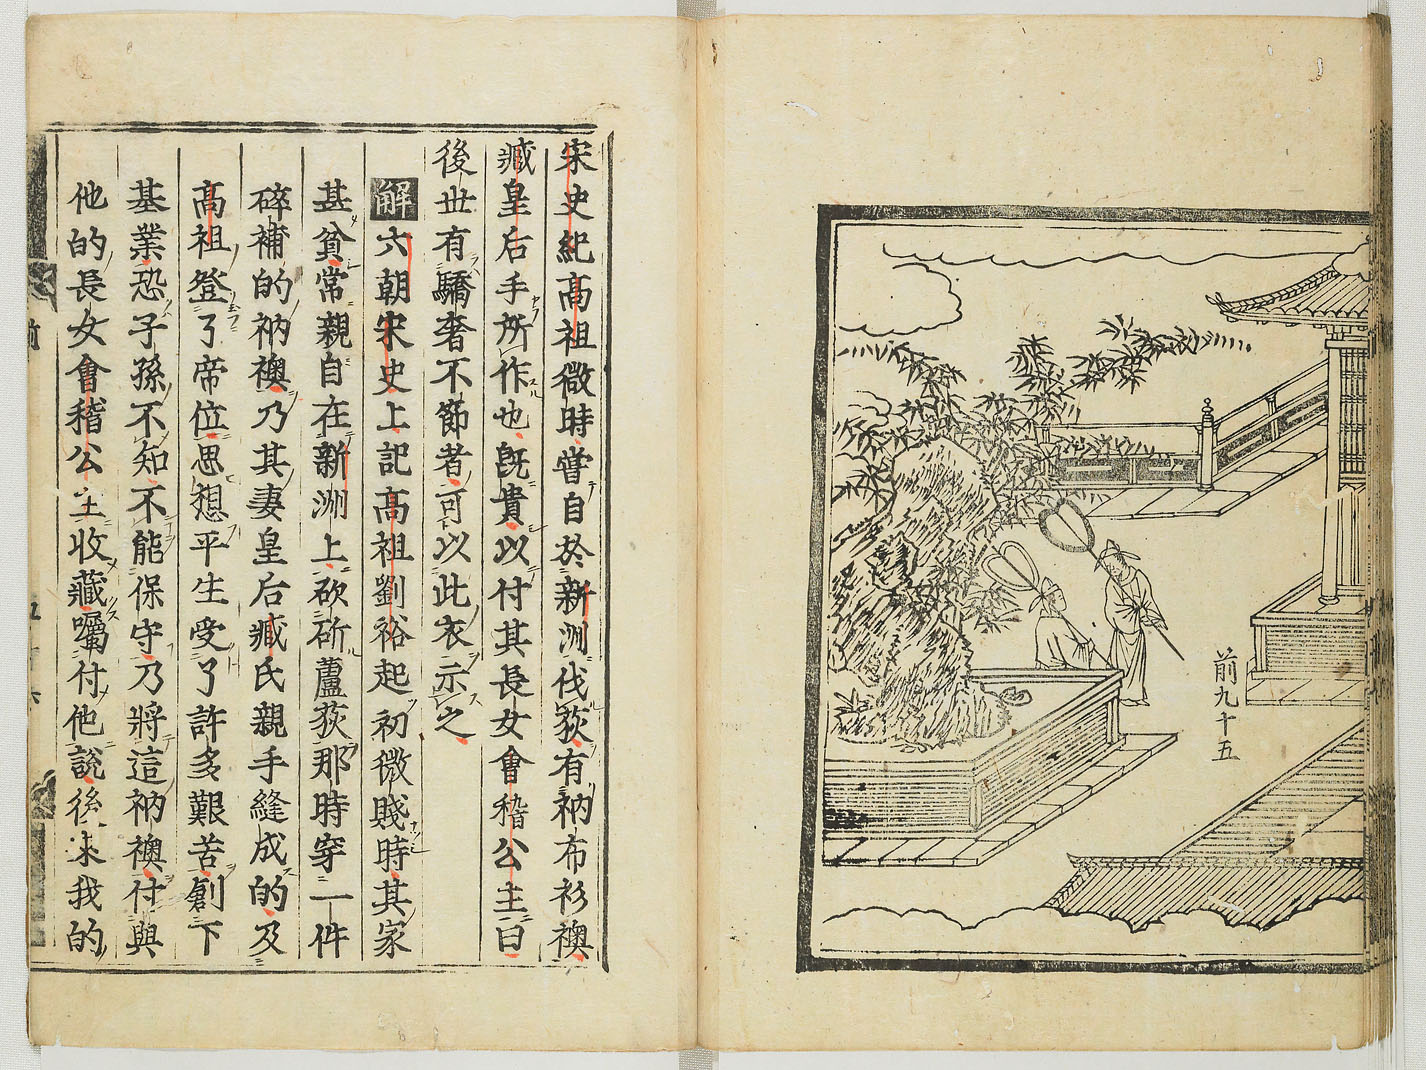 前九十五
宋史紀高祖微時嘗自於新洲伐荻有衲布衫襖
臧皇后手所作也旣貴以付其長女會稽公主曰
後世有驕奢不節者可以此衣示之
解六朝宋史上記高祖劉裕起初微賤時其家
甚貧常親自在新洲上砍斫蘆荻那時穿一件
碎補的衲襖乃其妻皇后臧氏親手縫成的及
高祖登了帝位思想平生受了許多艱苦創下
基業恐子孫不知不能保守乃將這衲襖付與
他的長女會稽公主收藏囑付他說後來我的
前